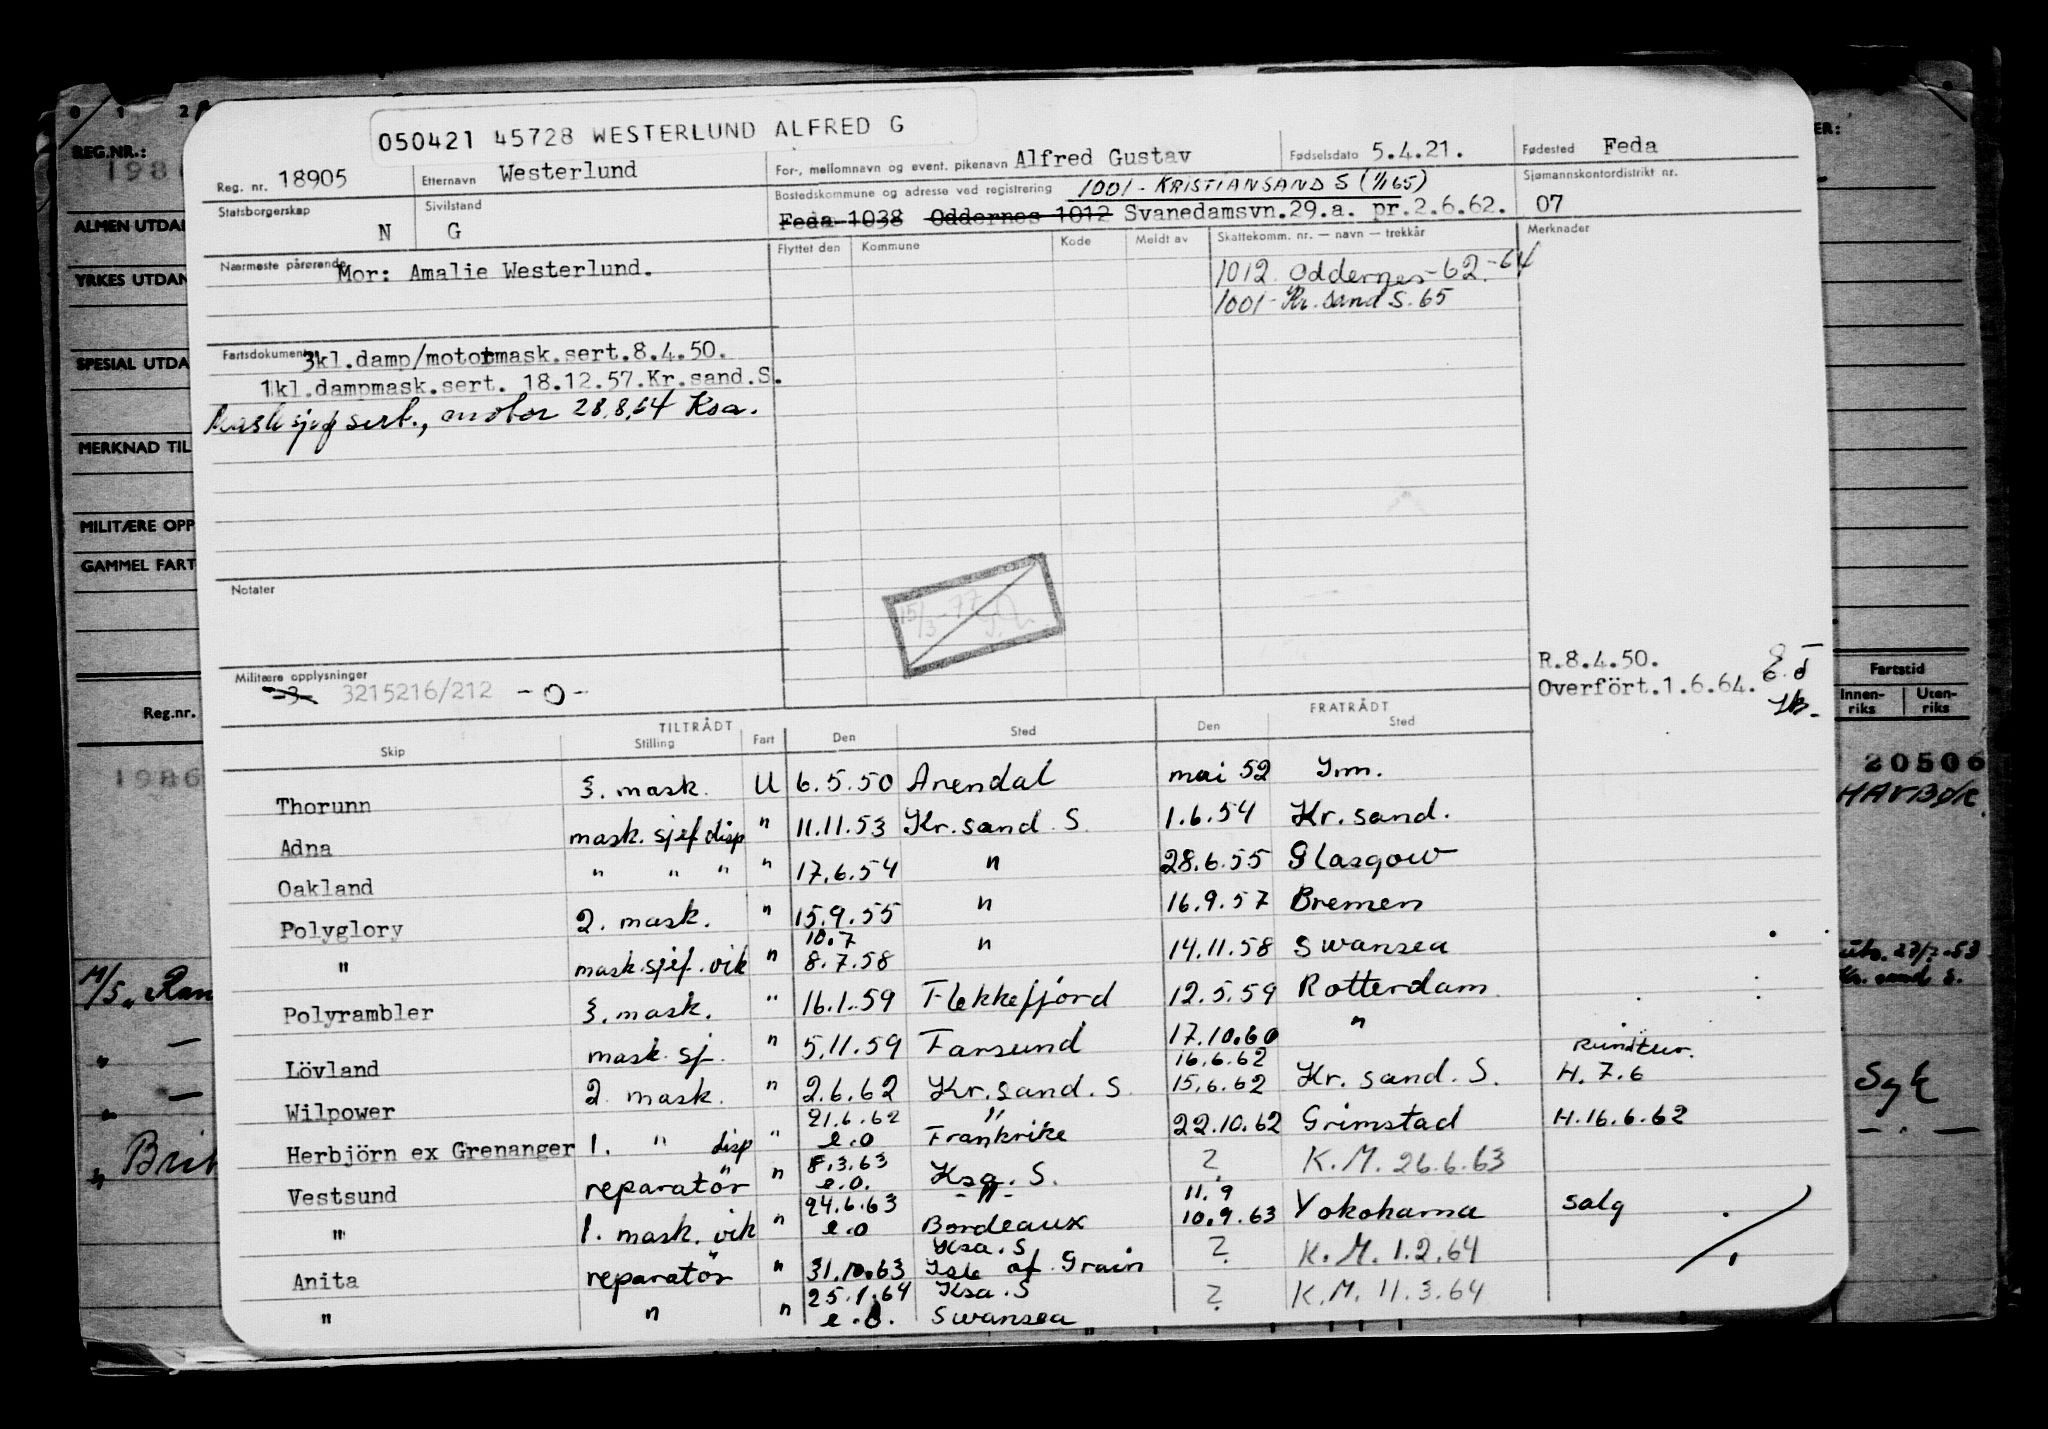 050421 45728 WESTERLUND ALFRED G
Reg. nr. 18905 Etternavn Westerlund For-, mellomnavn og event. pikenavn Alfred Gustav Fødselsdato 5.4.21. Fødested Feda
Statsborgerskap N Sivilstand G Bostedskommune og adresse ved registrering 1001 - KRISTIANSAND S (1/1 65) Sjømannskontordistrikt nr. 07
Feda 1038 Oddernes 1012 Svanedamsvn.29.a. pr.2.6.62.
Nærmeste pårørende Mor: Amalie Westerlund. Flyttet den Kommune Kode Meldt av Skattekomm. nr. — navn — trekkår Merknader
1012 Oddernes-62-64
1001- Kr. sand S. 65
Fartsdokumenter 3kl.damp/motormask.sert.8.4.50.
1kl.dampmask.sert. 18.12.57.Kr.sand.S.
Mask sjef sert., motor 28.8.64 Ksa.
Notater
15/3-77
Militære opplysninger 3215216/212 -0-
R.8.4.50.
Overfört.1.6.64.
TILTRÅDT FRATRÅDT
Skip Stilling Fart Den Sted Den Sted
Thorunn 3. mask. U 6.5.50 Arendal mai 52 Imm.
Adna mask.sjef disp " 11.11.53 Kr.sand S. 1.6.54 Kr.sand.
Oakland " " " " 17.6.54 " 28.6.55 Glasgow
Polyglory 2. mask. " 15.9.55 " 16.9.57 Bremen
" mask.sjef.vik " 10.7 8.7.58 " 14.11.58 Swansea
Polyrambler 3. mask. " 16.1.59 Flekkefjord 12.5.59 Rotterdam
Lövland mask.sj. " 5.11.59 Farsund 17.10.60 "
Wilpower 2 mask. " 2.6.62 Kr.sand.S. 16.6.62 15.6.62 Kr.sand.S. Rundtur. H.7.6
Herbjörn ex Grenanger 1. " disp " 21.6.62 e.o " Frankrike 22.10.62 Grimstad H.16.6.62
Vestsund reparatör " 8.3.63 e.o. Ksa. S. ? K.M. 26.6.63
" 1. mask. vik " 24.6.63 e.o -"- Bordeaux 11.9 10.9.63 Yokohama salg
Anita reparatör " 31.10.63 Ksa. S Isle of Grain ? K.M. 1.2.64
" " " 25.1.64 e.o. Ksa. S Swansea ? K.M. 11.3.64
REG.NR.:
ALMEN UTDA
YRKES UTDAN
SPESIAL UTDA
MERKNAD TIL
MILITÆRE OPP
GAMMEL FART
Reg.nr.
1986
M/S "Ran
" —
" —
" Brit
Fartstid
Innen-riks Uten-riks
20506
HAVBØK
Kr. sand S.
Syk
— . —